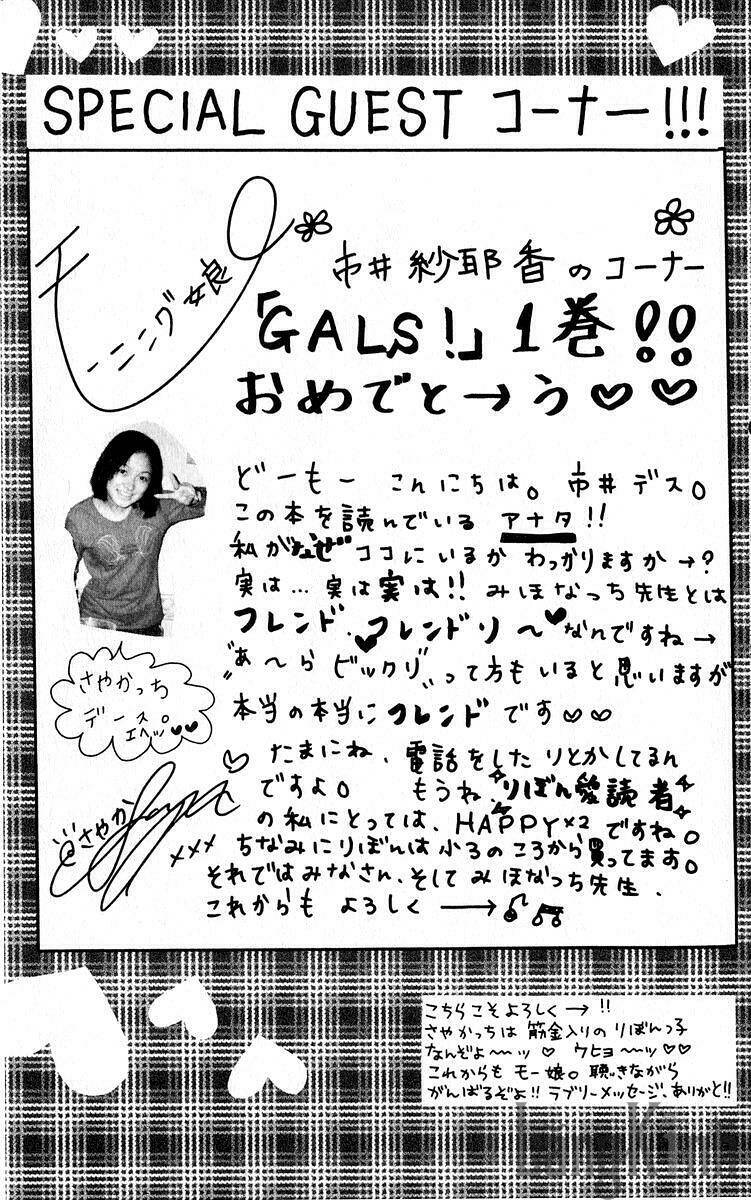 SPECIAL GUEST コーナー!!!
モーニング娘
市井紗耶香のコーナー
「GALS!」1巻!!
おめでと→う♡♡
どーもー こんにちは。市井デス。
この本を読んでいる アナタ!!
私がなぜ ココにいるか わっかりますか→?
実は…実は実は!! みほなっち先生とは
フレンド、フレンドリ〜♥なんですね→
"あ〜ら ビックリ"って方もいると思いますが
本当の本当にフレンドです♡♡
たまにね、電話をしたりとかしてるん
ですよ。 もうね、りぼん愛読者
の私にとっては、HAPPY×2ですね。
ちなみにりぼんは小3のころから買ってます。
それではみなさん、そして みほなっち先生、
これからも よろしく→♪♫
さやかっち
デース。
エヘッ♥♥
さやか
×××
こちらこそよろしく→!!
さやかっちは 筋金入りの りぼんっ子
なんぞよ〜ッ♡ ウヒョ〜ッ♡♡
これからも モー娘。聴きながら
がんばるぞよ!! ラブリーメッセージ、ありがと!!